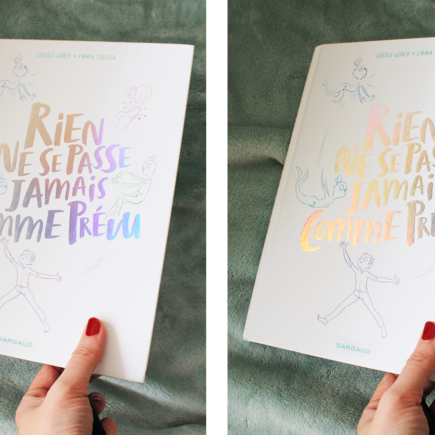 LUCILE GORCE + EMMA TISSIER
RIEN
NE SE PASSE
JAMAIS
OMME PRÉVU
DARGAUD
LUCILE GORCE + EMMA
RIEN
NE SE PAS
JAMAI
COMME PRÉ
DARGAUD